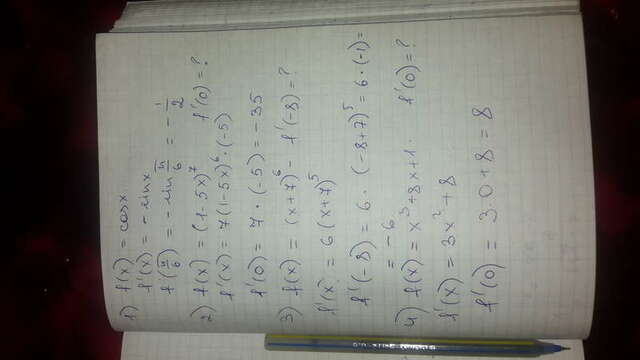 1) f(x) = cosx
f'(x) = - sinx
f'(π/6) = - sin π/6 = - 1/2
2) f(x) = (1-5x)^7 f'(0) = ?
f'(x) = 7(1-5x)^6 · (-5)
f'(0) = 7 · (-5) = -35
3) f(x) = (x+7)^6 - f'(-8) = ?
f'(x) = 6(x+7)^5
f'(-8) = 6 · (-8+7)^5 = 6 · (-1) =
= -6
4) f(x) = x^3 + 8x + 1 · f'(0) = ?
f'(x) = 3x^2 + 8
f'(0) = 3·0 + 8 = 8